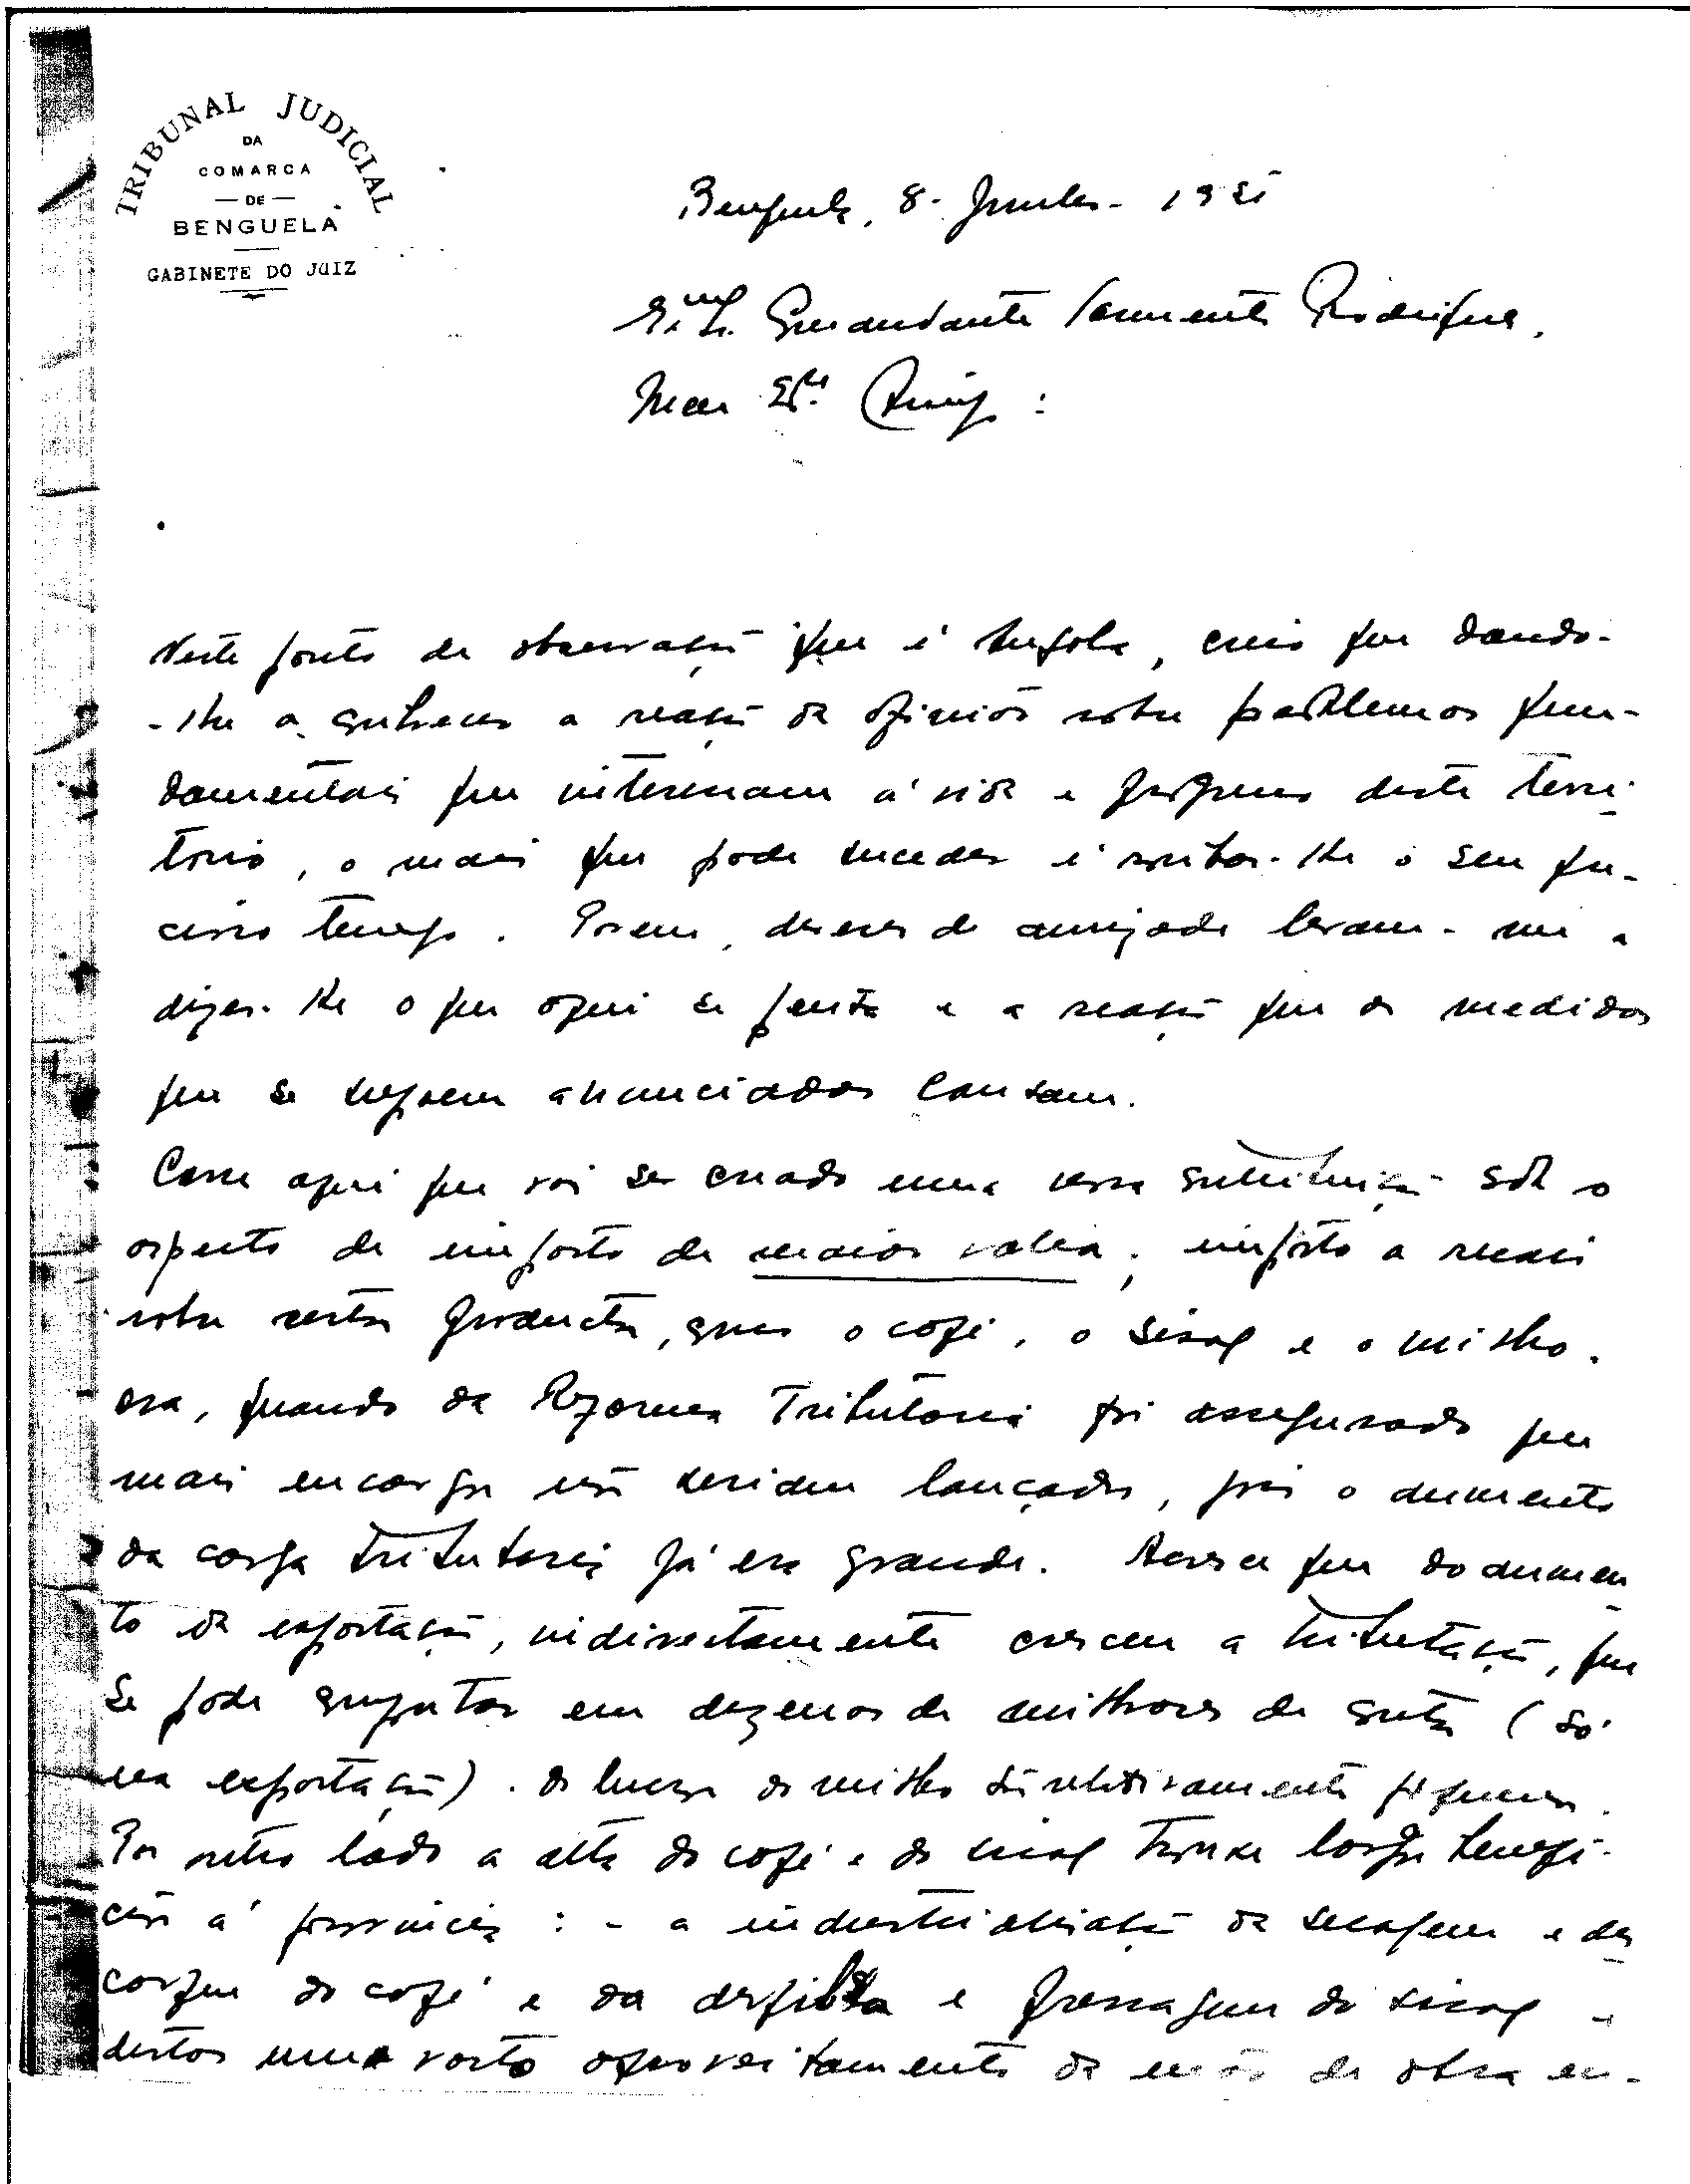 TRIBUNAL JUDICIAL
DA
COMARCA
— DE —
BENGUELA
GABINETE DO JUIZ
Benguela, 8 - Junho - 195
Exmo. Sr. Comandante Sarmento Rodrigues,
Meu Exmo. Amigo :
Neste ponto de observação que é Angola, creio que dando-
-lhe a conhecer a reação da opinião sobre problemas fun-
damentais que interessam á vida e progresso deste terri-
torio, o mais que pode suceder é roubar-lhe o seu pre-
cioso tempo. Porem, deveres de amizade levam-me a
dizer-lhe o que aqui se sente e a reação que as medidas
que se supoem anunciadas causam.
Corre aqui que vai ser criado uma nova contribuição sob o
aspecto de imposto de maior valia; imposto a recair
sobre certos productos, como o café, o sisal e o milho.
Ora, quando da Reforma Tributaria foi assegurado que
mais encargos não seriam lançados, pois o aumento
da carga tributaria já era grande. Acresce que do aumen
to da exportação, indirectamente cresceu a tributação, que
se pode computar em dezenas de milhares de contos (só
na exportação). Os lucros do milho são relativamente pequenos.
Por outro lado a alta do café e do sisal trouxe largos benefi-
cios á provincia : - a industrialização da secagem e des
casque do café e da desfibra e prensagem do sisal -
destas uma vasto aproveitamento da mão de obra en-